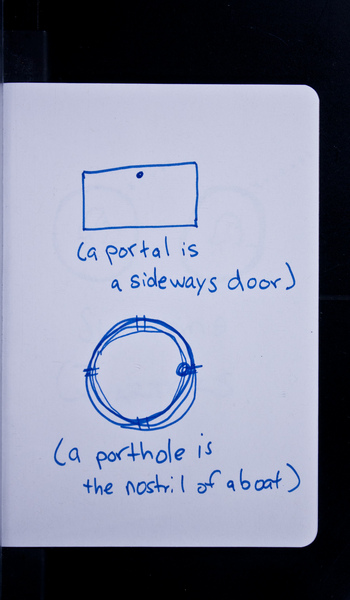 (a portal is
a sideways door)
(a porthole is
the nostril of a boat)